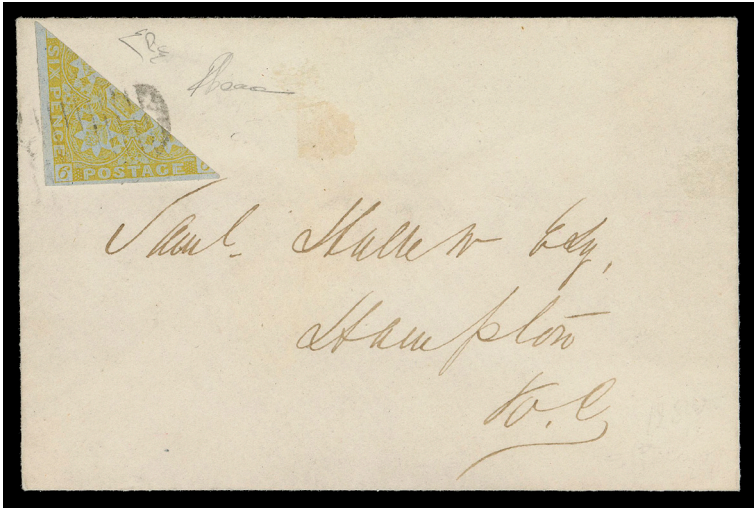 SIX PENCE
6 POSTAGE
Saml. Hallett Esq,
Hampton
K.C